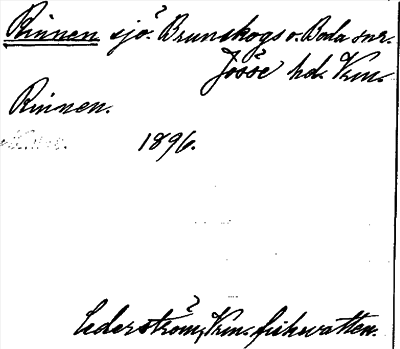 Rinnen sjö. Brunskogs o. Boda snr.
Jösse hd. Vrm.
Rinnen.
1896.
Cederström, Vrm. fiskevatten.